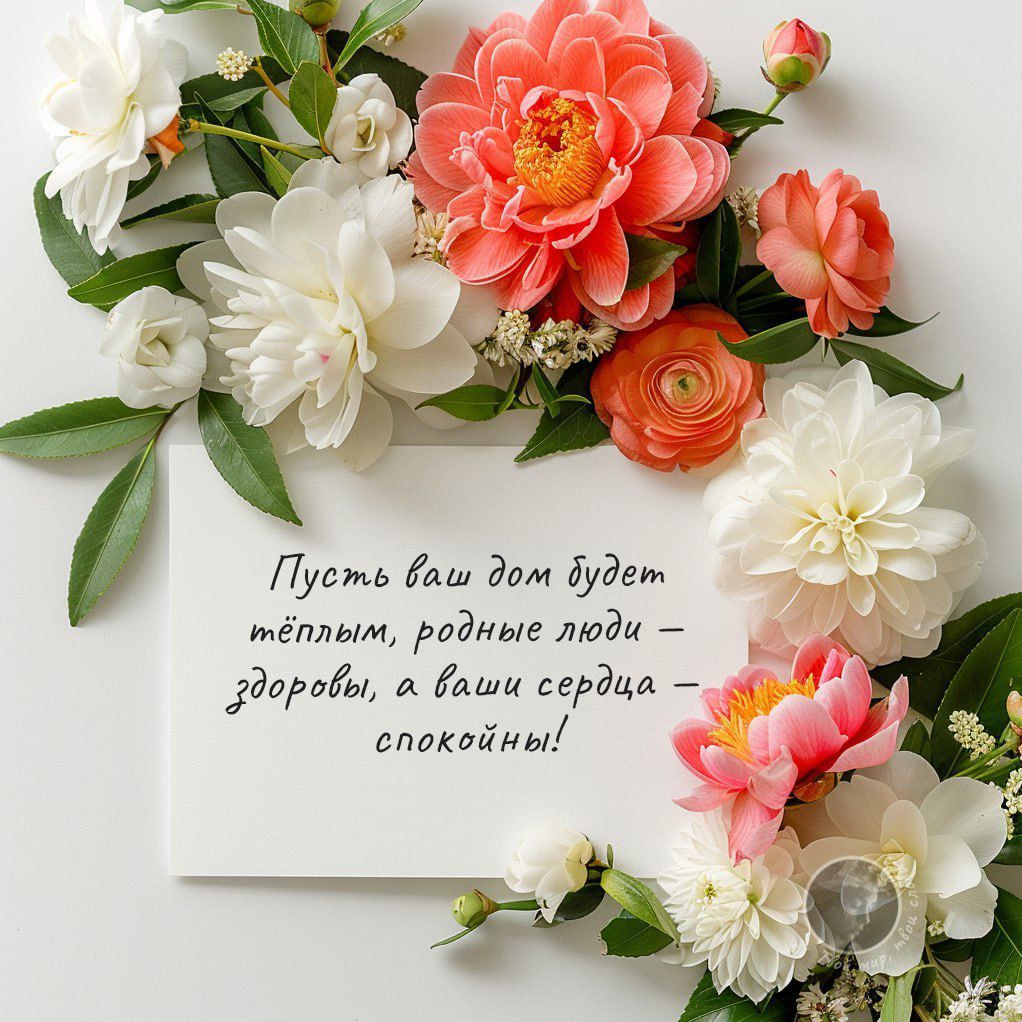 Пусть ваш дом будет
тёплым, родные люди –
здоровы, а ваши сердца –
спокойны!